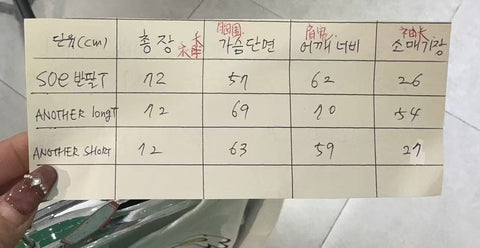 단위(cm) 총장 衣长 胸围 가슴단면 肩宽 어깨 너비 袖长 소매기장
SOE 반팔T 72 57 62 26
ANOTHER longT 72 69 70 54
ANOTHER SHORT 72 63 59 27